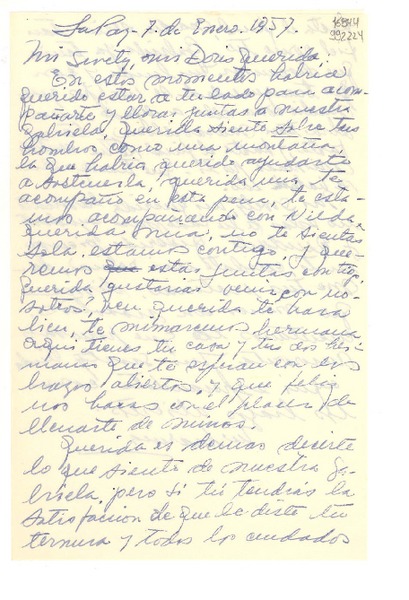 16844
992224
La Paz - 7 de Enero. 1957.
Mi Sweety, mi Doris querida:
En estos momentos habria
querido estar a tu lado para acom-
pañarte y llorar juntas a nuestra
Gabriela, querida siento sobre tus
hombros como una montaña,
la que habria querido ayudarte
a sostenerla, querida mia, te
acompaño en esta pena, te esta-
mos acompañando con Nilda,
querida mia, no te sientas
sola, estamos contigo, y que-
remos que estar juntas contigo,
querida gustaria venir con no-
sotras? ven querida te hara
bien, te mimaremos hermana
aqui tienes tu casa y tus dos her-
manas que te esperan con los
brazos abiertos, y que feliz
nos haras con el placer de
llenarte de mimos.
Querida es demas decirte
lo que siento de nuestra Ga-
briela, pero si tú tendrás la
satisfacion de que le diste tu
ternura y todos los cuidados